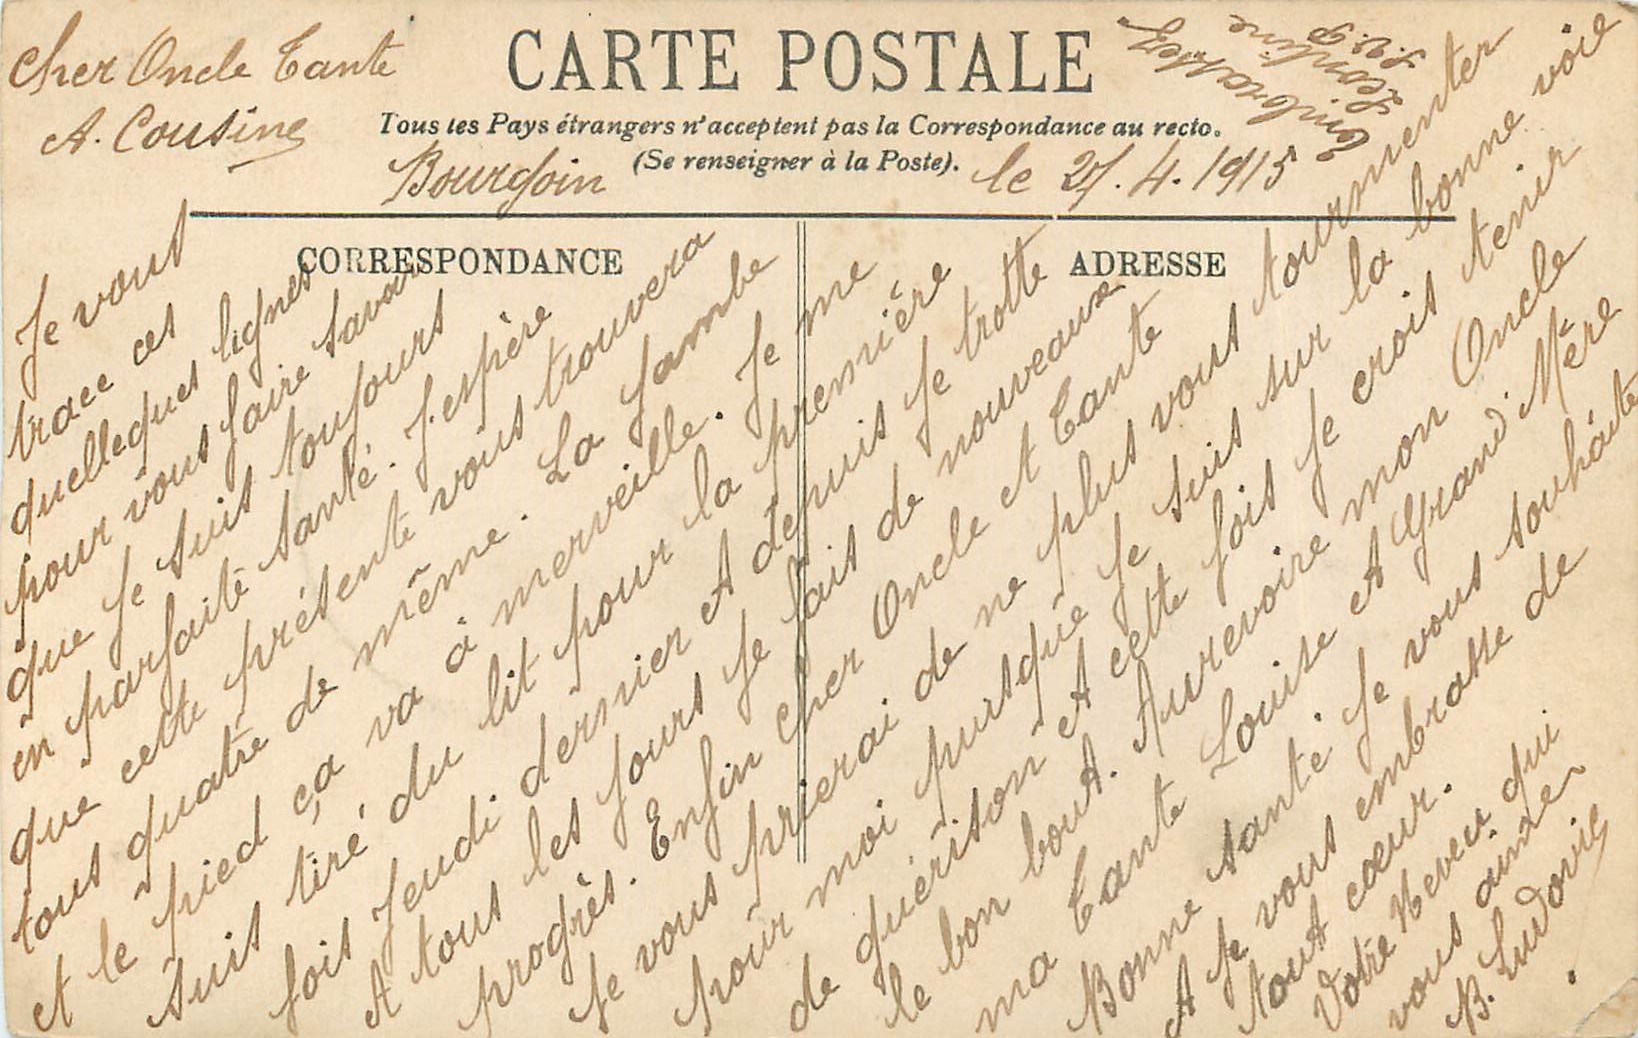 CARTE POSTALE
Tous les Pays étrangers n'acceptent pas la Correspondance au recto.
(Se renseigner à la Poste).
CORRESPONDANCE
ADRESSE
Bourgoin le 27.4.1915
Cher Oncle Tante
A. Cousine
Je vous
trace ces
quelleques lignes
pour vous faire savoir
que je suis toujours
en parfaite santé. J'espère
que cette présente vous trouvera
tous quatre de même. La jambe
et le pied ça va à merveille. Je me
suis tiré du lit pour la première
fois jeudi dernier et depuis je trotte
et tous les jours je fais de nouveaux
progrès. Enfin cher Oncle et Tante
je vous prierai de ne plus vous tourmenter
pour moi puisque je suis sur la bonne voie
de guérison et cette fois je crois tenir
le bon bout. Aurevoire mon Oncle
ma Tante Louise et Grand Mère
Bonne santé je vous souhaite
et je vous embrasse de
tout cœur.
Votre Neveu qui
vous aime
B. Ludovic
Embrassez
Léontine
S.V.P